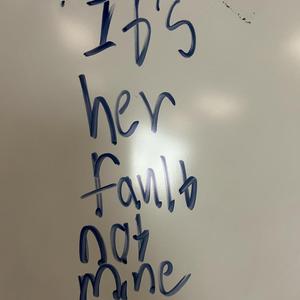 It's
her
fault
not
mine